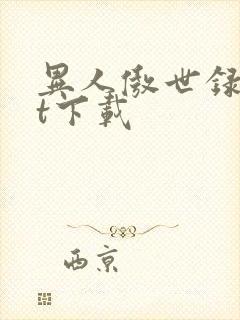 異人傲世録
t下載
西京